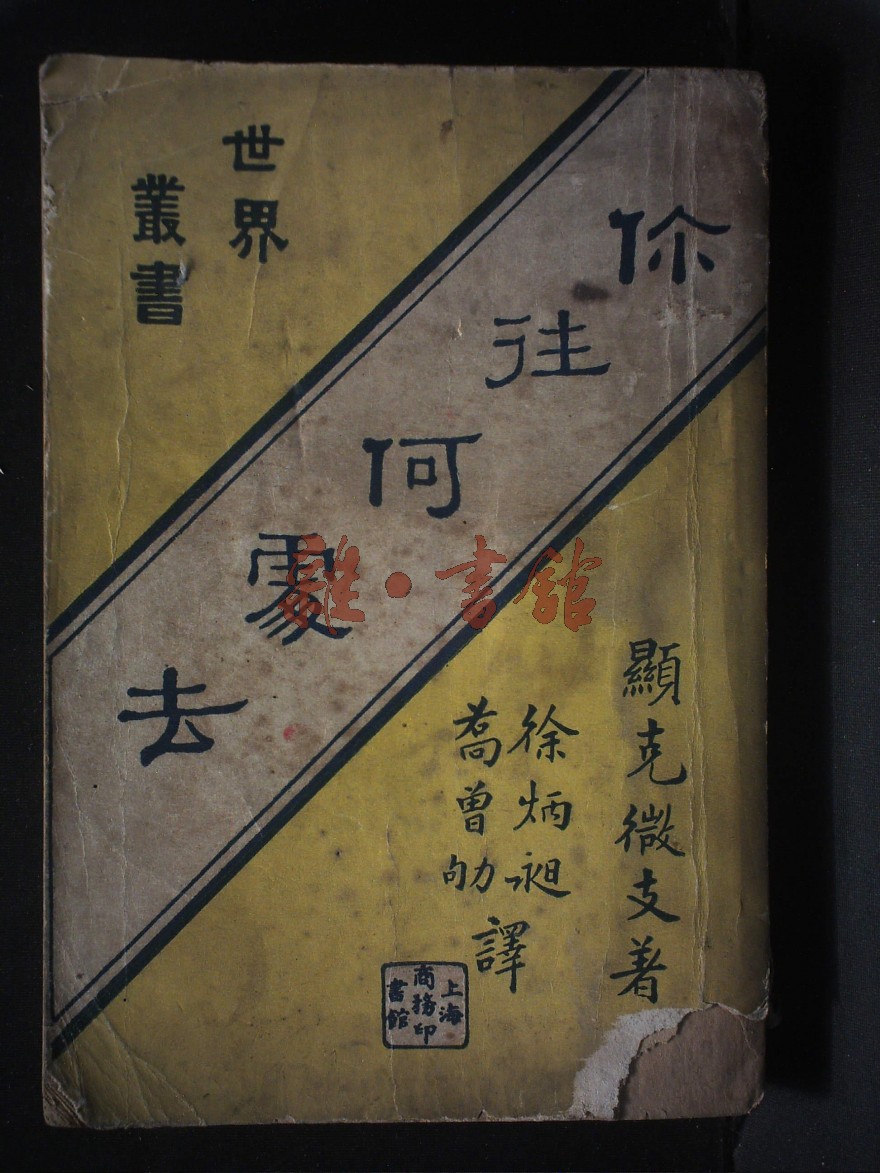 世界
叢書
你往何處去
顯克微支著
徐炳昶
喬曾劬
譯
上海
商務印
書館
雜·書館